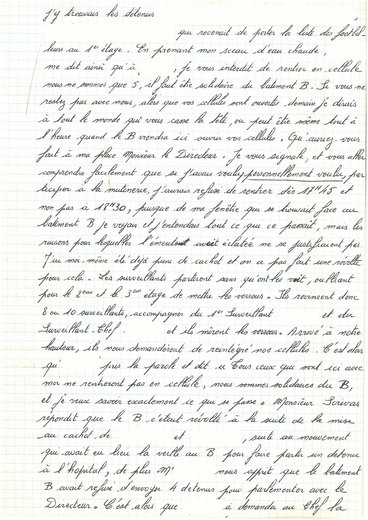 J'y trouvais les détenus
qui revenait de porter la liste des footbal-
leurs au 1er étage. En prenant mon sceau d'eau chaude,
me dit ainsi qu'à , je vous interdit de rentrer en cellule
nous ne sommes que 5, il faut être solidaire du batiment B. Si vous ne
restez pas avec nous, alors que vos cellules sont ouvertes demain je dirais
à tout le monde qui vous casse la tête, ou peut être même tout à
l'heure quand le B viendra ici ouvrir vos cellules. Qu'auriez vous
fait à ma place Monsieur le Directeur. Je vous signale, et vous allez
comprendre facilement que si j'avais voulu, personnellement voulu, par
ticiper à la mutinerie, j'aurais refusé de rentrer dès 17H45 et
non pas à 18H30, puisque de ma fenêtre qui se trouvait face au
batiment B je voyais et j'entendais tout ce que ce passait, mais les
raisons pour lesquelles l'émeute avait éclatée ne se justifiaient pas.
J'ai moi même été déjà puni de cachot et on a pas fait une révolte
pour cela. Les surveillants partirent sans qu'on les voit, oubliant
pour le 2ème et le 3ème étage de mettre les verrous. Ils revinrent donc
8 ou 10 surveillants, accompagnés du 1er Surveillant et du
Surveillant-Chef et ils mirent les verrous. Arrivé à notre
hauteur, ils nous demandèrent de réintégré nos cellules. C'est alors
qu' pris la parole et dit. « Tous ceux qui sont ici avec
moi ne rentreront pas en cellule, nous sommes solidaires du B,
et je veux savoir exactement ce qui se passe » Monsieur Scrivas
répondit que le B s'était révolté à la suite de la mise
au cachot de et , suite au mouvement
qui avait eu lieu la veille au B pour faire partir un détenu
à l'hopital, de plus Mr nous apprit que le batiment
B avait refusé d'envoyer 4 détenus pour parlementer avec le
Directeur. C'est alors que à demandu au Chef la